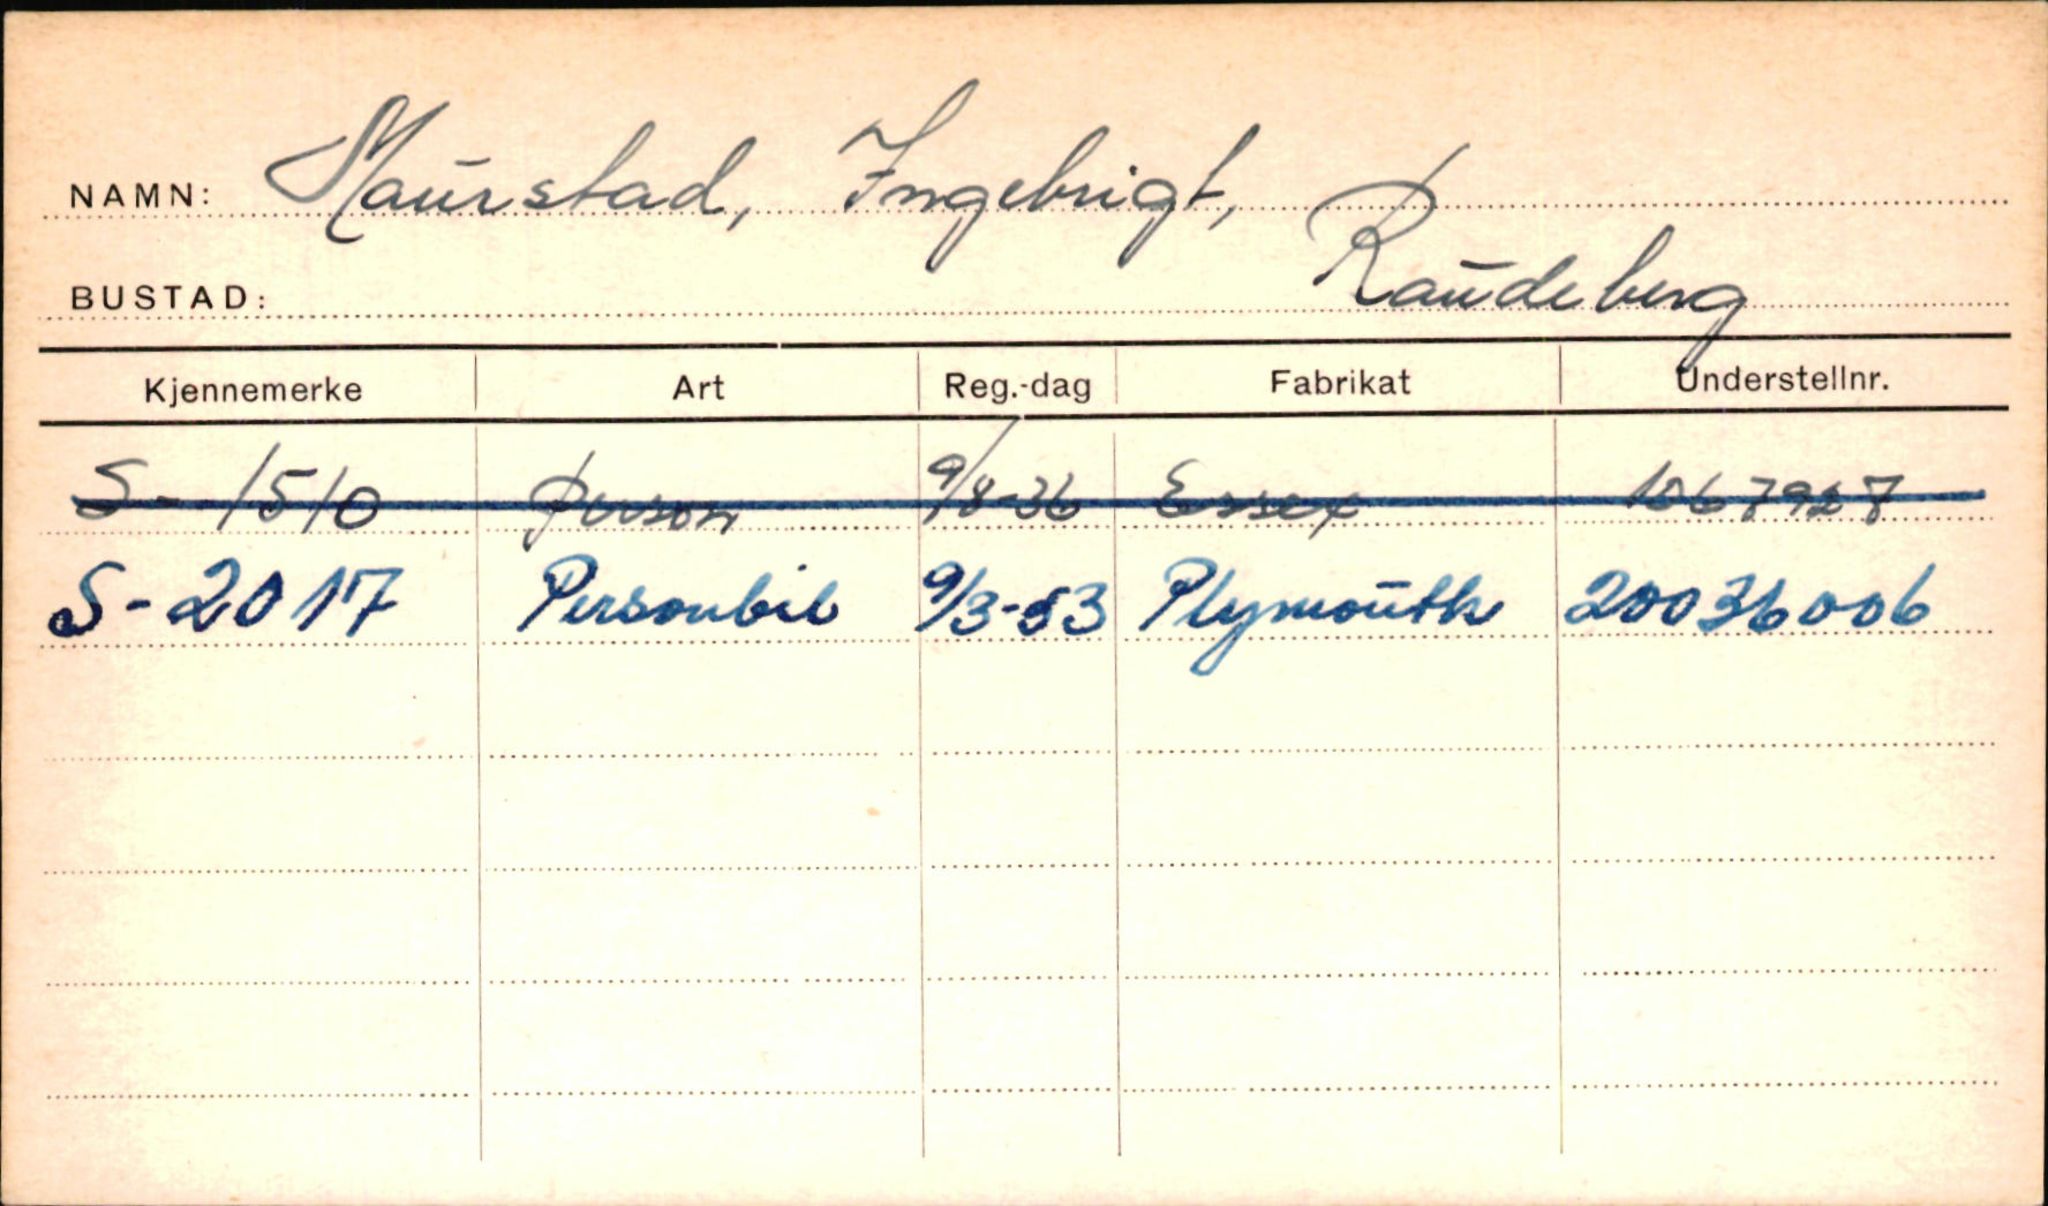 NAMN: Maurstad, Ingebrigt,
BUSTAD: Raudeberg
Kjennemerke Art Reg.-dag Fabrikat Understellnr.
S- 1510 person 9/8-36 Essex 1067927
S-2017 Personbil 9/3-53 Plymouth 20036006